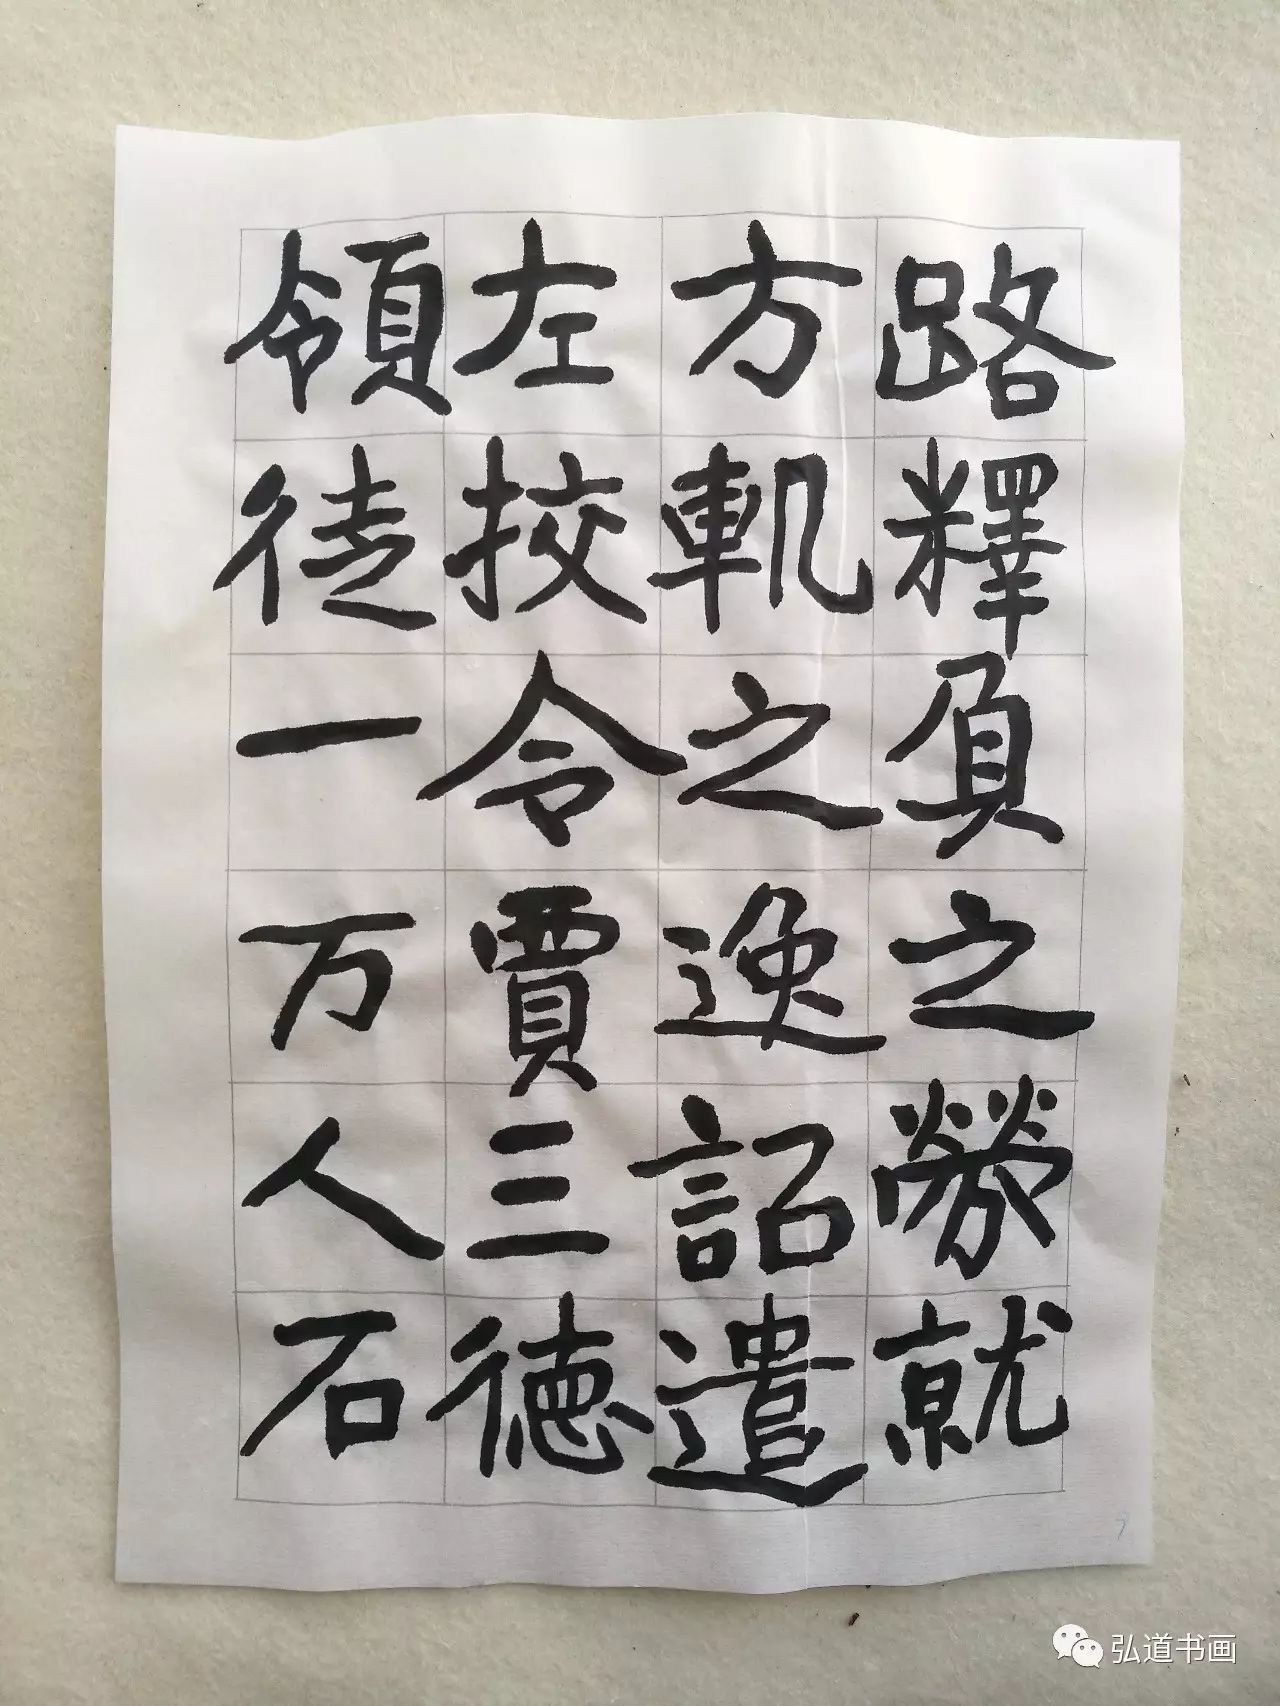 路釋負之勞就
方軌之逸詔遣
左挍令賈三德
領徒一万人石
弘道书画